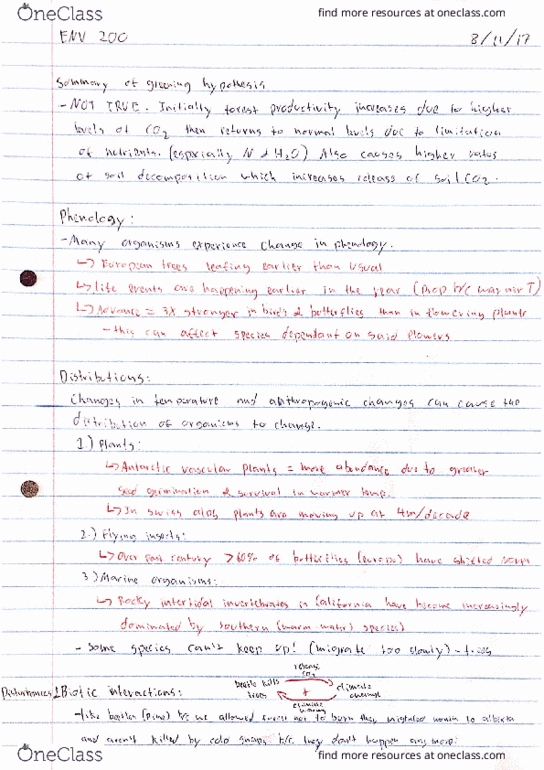 OneClass
find more resources at oneclass.com
ENV 200
8/11/17
Summary of greening hypothesis
- NOT TRUE. Initially forest productivity increases due to higher
levels of CO2 then returns to normal levels due to limitation
of nutrients. (especially N & H2O) Also causes higher rates
of soil decomposition which increases release of soil CO2.
Phenology:
- Many organisms experience change in phenology.
↳ European trees leafing earlier than usual
↳ life events are happening earlier in the year (prop b/c warmer T)
↳ Advance = 3X stronger in birds & butterflies than in flowering plants
- this can affect species dependant on said flowers
Distributions:
Changes in temperature and anthropogenic changes can cause the
distribution of organisms to change.
1.) Plants:
↳ Antarctic vascular plants = more abundance due to greater
seed germination & survival in warmer temp.
↳ In swiss alps plants are moving up at 4m/decade
2.) Flying insects:
↳ Over past century >60% of butterflies (europe) have shifted north
3.) Marine organisms:
↳ Rocky intertidal invertebrates in California have become increasingly
dominated by southern (warm water) species)
- Some species can't keep up! (migrate too slowly) - trees
release CO2
beetle kills trees
+
climate change
climate warming
Disturbances & Biotic interactions:
- like beetles (pine) b/c we allowed forest not to burn they migrated north to alberta
and aren't killed by cold snaps b/c they don't happen anymore
OneClass
find more resources at oneclass.com